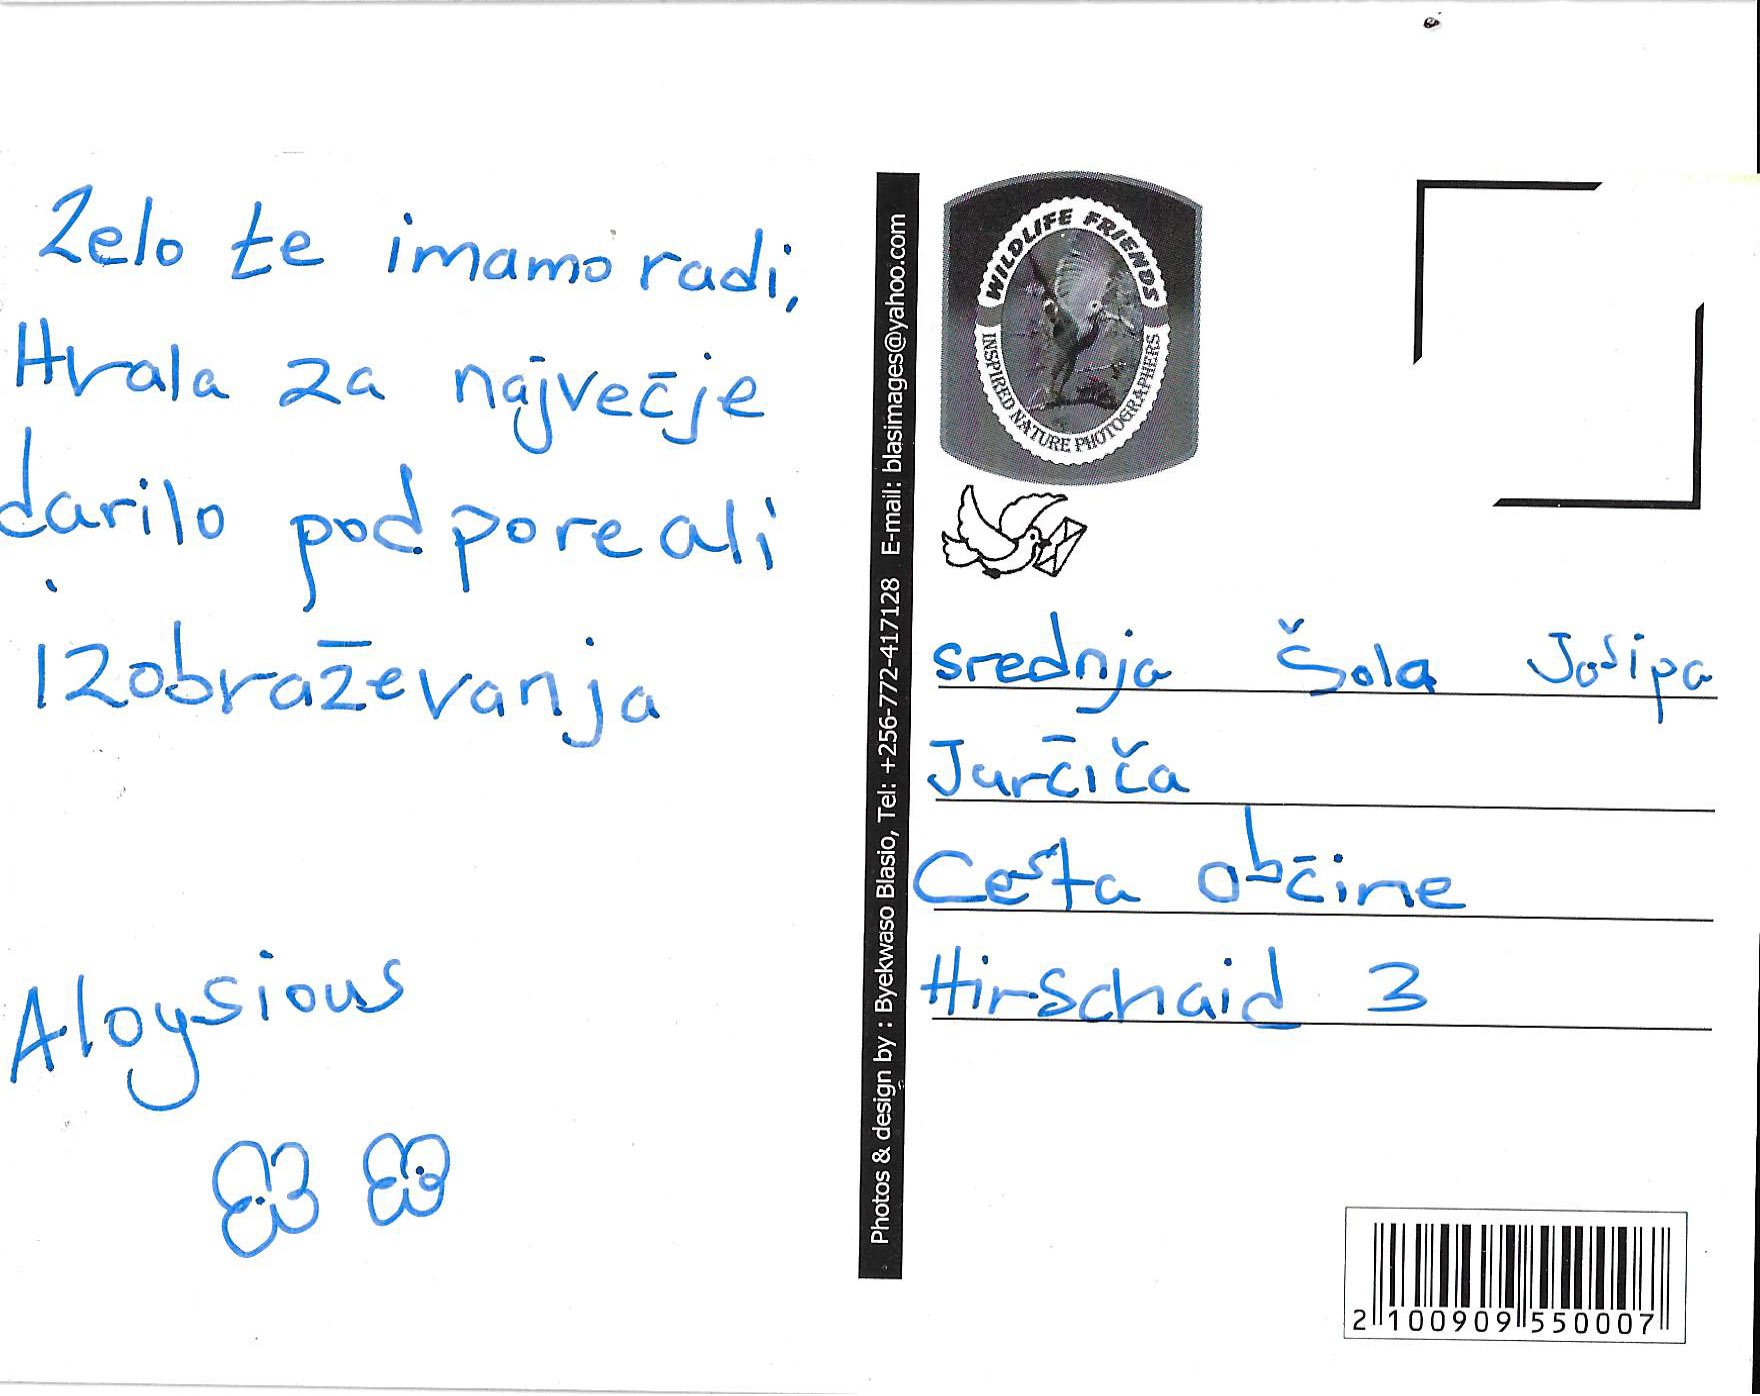 Zelo te imamo radi,
Hvala za največje
darilo podpore ali
izobraževanja
Aloysious
WILDLIFE FRIENDS
INSPIRED NATURE PHOTOGRAPHERS
Photos & design by : Byekwaso Blasio, Tel: +256-772-417128 E-mail: blasimages@yahoo.com
srednja Šola Josipa
Jurčiča
Cesta občine
Hirschaid 3
2 100909 550007